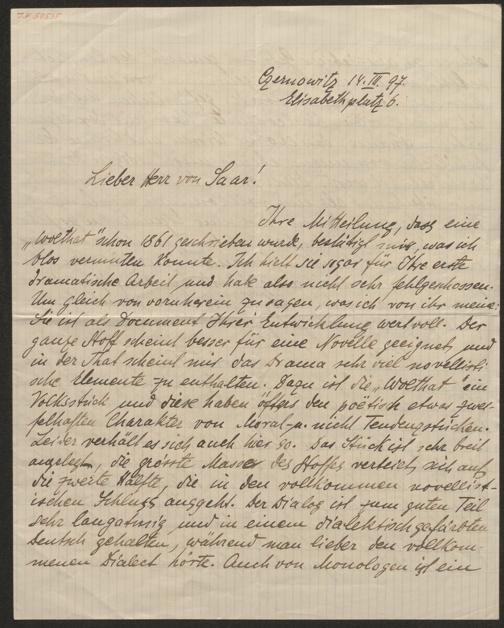 Czernowitz 14. III. 97.
Elisabethplatz 6.
Lieber Herr von Saar!
Ihre Mitteilung, dass eine
„Wolthat" schon 1861 geschrieben wurde, bestätigt mir, was ich
blos vermuten konnte. Ich hielt sie sogar für Ihre erste
dramatische Arbeit und habe also nicht sehr fehlgeschossen.
Um gleich von vornherein zu sagen, was ich von ihr meine:
Sie ist als Document Ihrer Entwicklung wertvoll. Der
ganze Stoff scheint besser für eine Novelle geeignet und
in der That scheint mir das Drama sehr viel novellisti-
sche Elemente zu enthalten. Dazu ist die „Wolthat" ein
Volksstück und diese haben öfters den poëtisch etwas zwei-
felhaften Charakter von Moral- u. nicht Tendenzstücken.
Leider verhält es sich auch hier so. Das Stück ist sehr breit
angelegt, die grösste Masse des Stoffes verteilt sich auf
die zweite Hälfte, die in den vollkommen novellist-
ischen Schluss ausgeht. Der Dialog ist zum guten Teil
sehr langatmig und in einem dialektisch gefärbten
Deutsch gehalten, während man lieber den vollkom-
menen Dialect hörte. Auch von Monologen ist ein